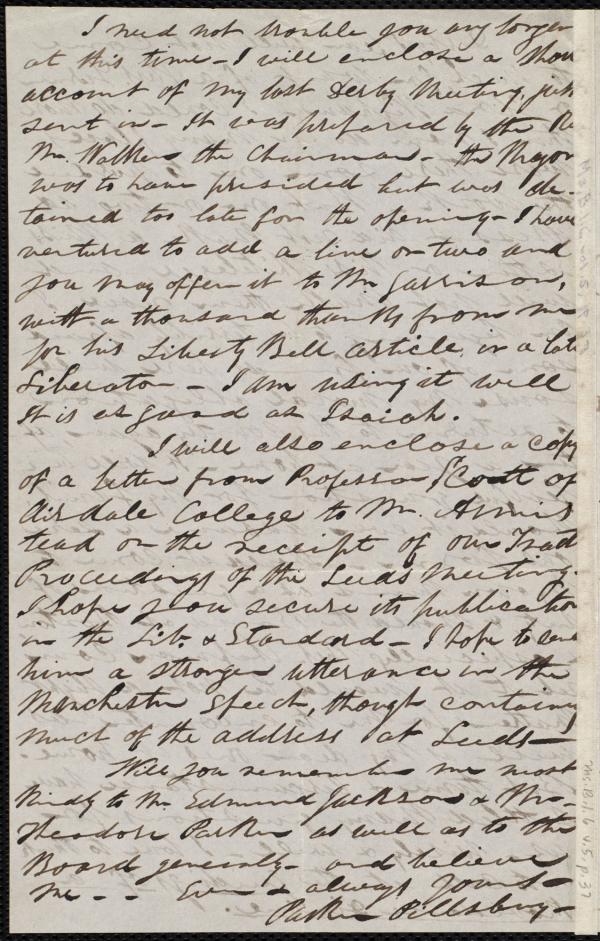 I need not trouble you any longer
at this time - I will enclose a short
account of my last Derby Meeting, just
sent in - It was prepared by the Re
Mr. Walker the Chairman - the Mayor
was to have presided but was de-
tained too late for the opening - I have
ventured to add a line or two and
you may offer it to Mr Garrison,
with a thousand thanks from me
for his Liberty Bell article in a late
Liberator - I am using it well
It is as good as Isaiah.
I will also enclose a copy
of a letter from Professor Scott of
Airdale College to Mr. Armis
tead on the receipt of our Tract
Proceedings of the Leeds Meeting.
I hope you secure its publication
in the Lib. & Standard - I hope to
him a stronger utterance in the
Manchester Speech, though containing
much of the address at Leeds -
Will you remember me most
kindly to Mr. Edmund Jackson & Mr.
Theodore Parker as well as to the
Board generally - and believe
me - - Ever & always Yours -
Parker Pillsbury -
Ms.B.1.6 v.5, p.37